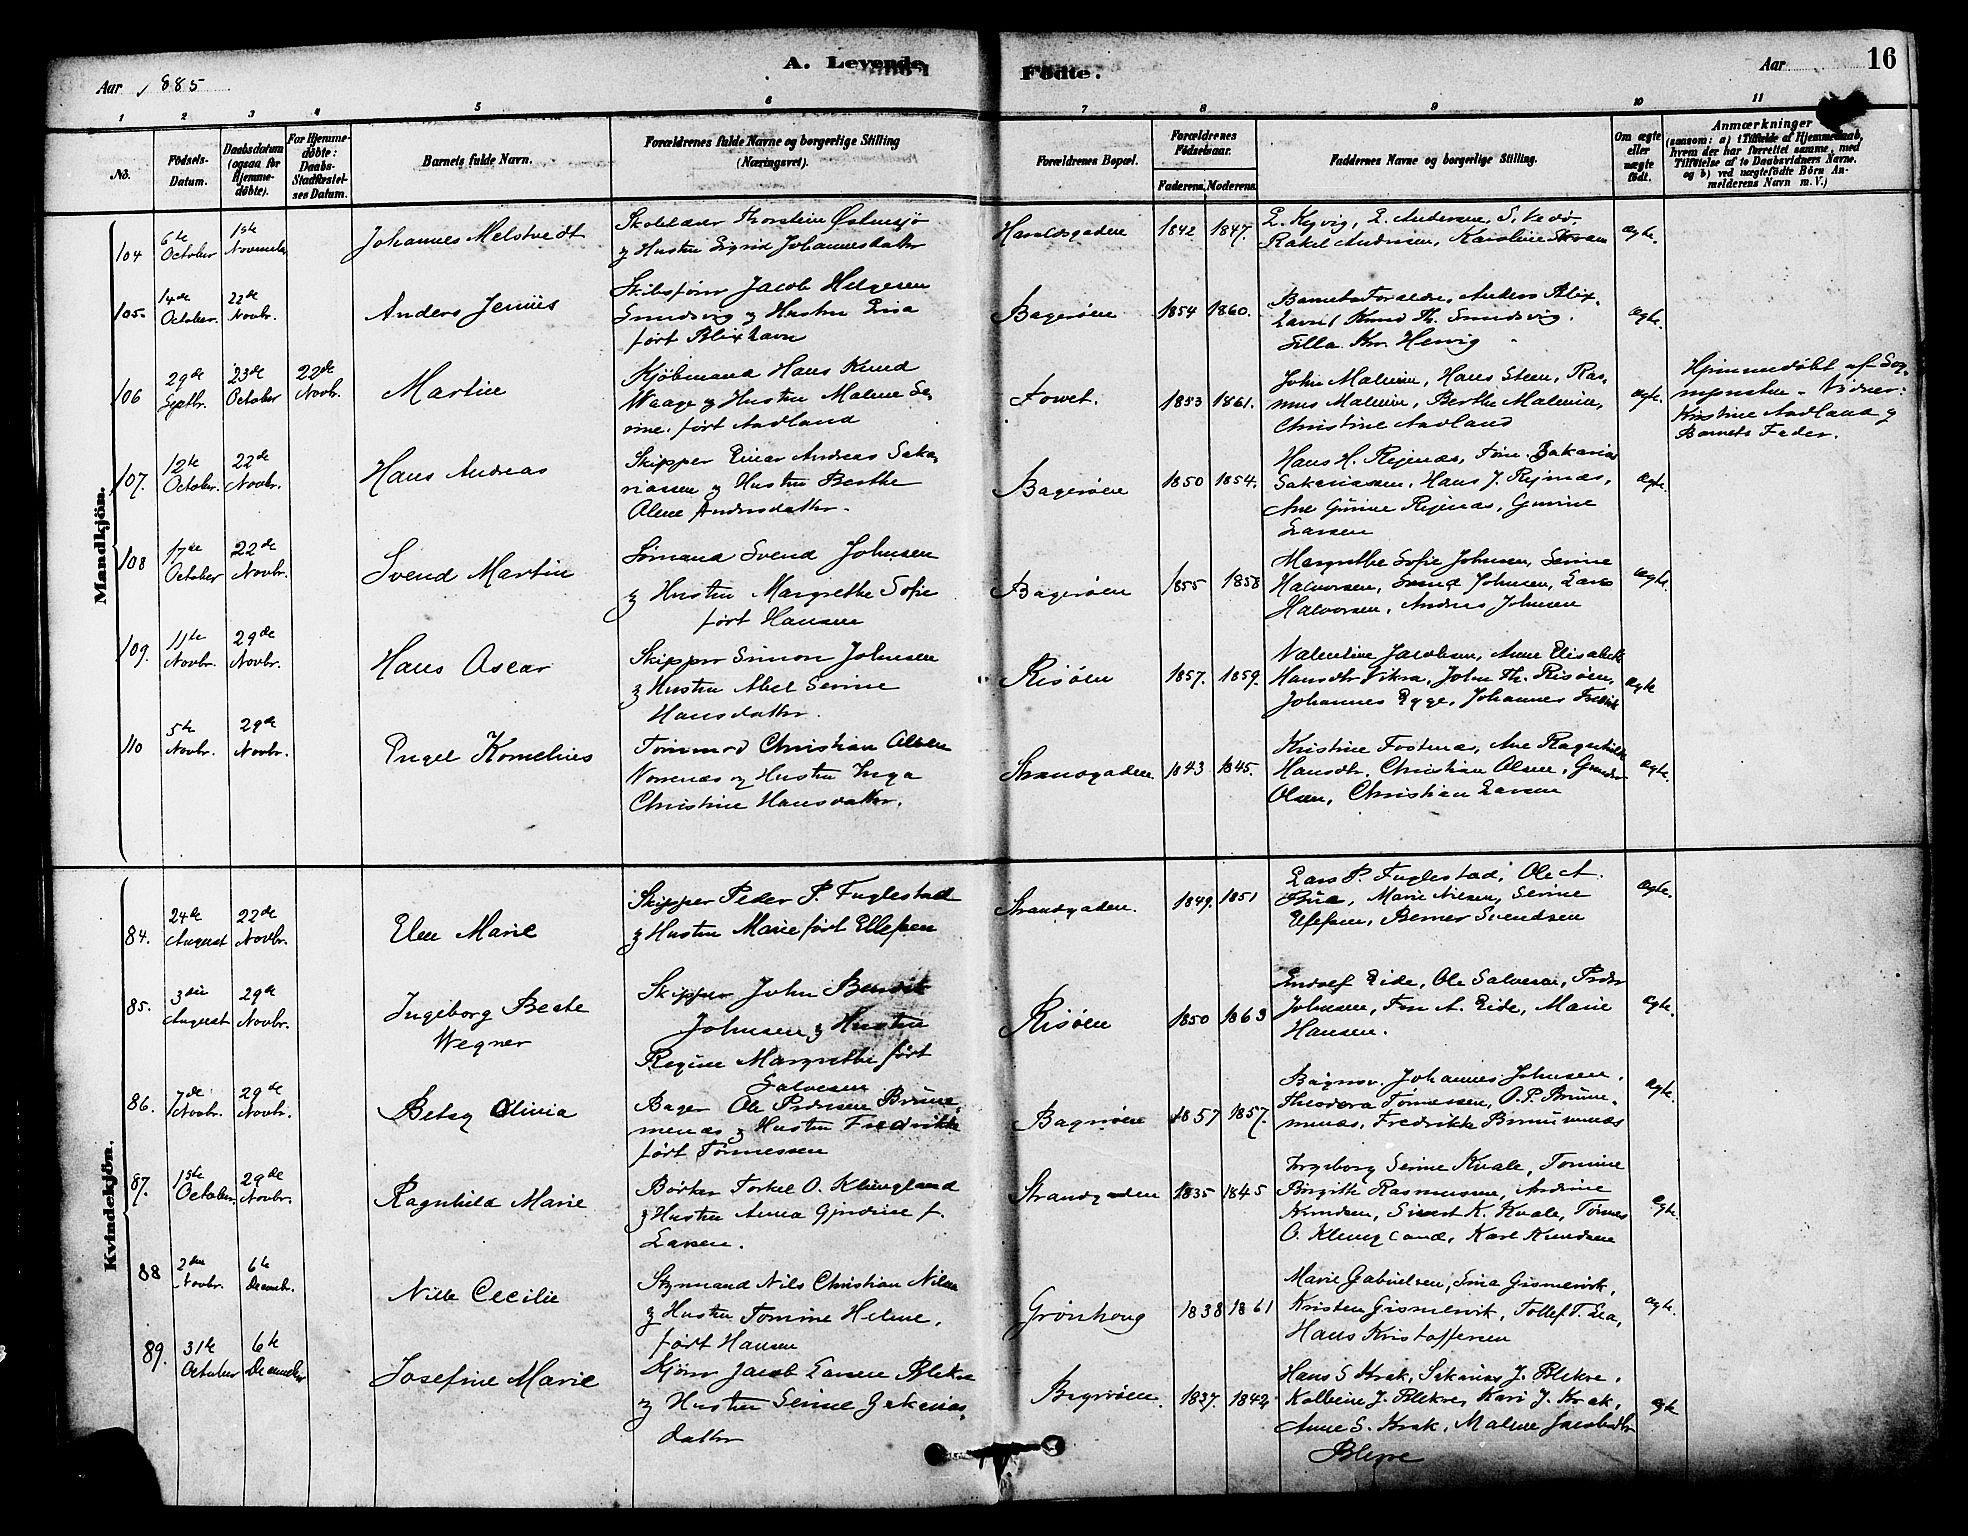 Aar 1885
A. Levende
Födte.
Aar
16
1 2 3 4 5 6 7 8 9 10 11
No.
Födsels-Datum.
Daabsdatum (ogsaa for Hjemmedöbte).
For Hjemmedöbte: Daabs-Stadfæstelses Datum.
Barnets fulde Navn.
Forældrenes fulde Navne og borgerlige Stilling (Næringsvei).
Forældrenes Bopæl.
Forældrenes Födselsaar.
Faderens. Moderens.
Faddernes Navne og borgerlige Stilling.
Om ægte eller uægte födt.
Anmærkninger
(saasom: a) i Tilfælde af Hjemmedaab, hvem der har forrettet samme, med Tilföielse af to Daabsvidners Navne. og b) ved uægtefödte Börn Anmelderens Navn m. V.)
Mandkjön.
104 6te October 1ste November
Johannes Melstvedt
Skolelærer Thorstein Østensjø
og Hustru Sigrid Johannesdatter
Haraldsgaden 1842 1847.
Rakel Andersen, Karoline
Ægte.
105 14de October. 22de Novbr.
Anders Jenius
Skibsfører Jacob Helgesen
Smedsvig og Hustru
født Blixhavn
Bagerøen 1854 1860.
Barnets Forældre, Anders Blix
Knud Th. Smedsvig.
Ægte.
106 29de Septbr. 23de October 22de Novbr.
Martin
Kjøbmand Hans Knud
Waage og Hustru Malene Se
rine født Aadland
Torvet. 1853 1861.
John Malmin, Hans Steen, Ras
mus Malmin, Berthe Malmin,
Christine Aadland
Ægte.
Hjemmedøbt af Sog
nepresten. Vidner:
Kristine Aadland og
Barnets Fader.
107. 12te October. 22de Novbr.
Hans Andreas
Skipper Einar Andreas Saka
riassen og Hustru Berthe
Olene Andersdatter.
Bagerøen 1850 1854.
Hans H. Rejenæs,
Sakariassen, Hans J. Rejnæs,
Ane Gurine Rejenæs, Gurine
Larsen
Ægte.
108 17de October 22de Novbr.
Svend Martin
Sømand Svend Johnsen
og Hustru Margrethe Sofie
født Hansen
Bagerøen 1855 1858
Margrethe Sofie Johnsen, Serine
Halvorsen, Svend Johnsen, Lars
Halvorsen, Andreas Johnsen
Ægte.
109. 11te Novbr. 29de Novbr.
Hans Oscar
Skipper Simon Johnsen
og Hustru Abel Serine
Hansdatter.
Risøen 1857. 1859.
Valentine Jacobsen, Anne Elisabeth
Hansdtr Vikra, John Th. Risøen,
Johannes Rygge, Johannes Fredrik
Ægte
110 5te Novbr. 29de Novbr.
Engel Kornelius
Tømmerm Christian Olsen
Nornæs og Hustru Inga
Christine Hansdatter.
Strandgaden 1843 1845.
Kristine Fostenæs, Ane Ragnhilde
Hansdtr. Christian Olsen, Gunder
Olsen, Christian Larsen
Ægte.
Kvindekjön.
84. 24de August 22de Novbr.
Elen Marie
Skipper Peder P. Fuglestad
og Hustru Marie født Ellefsen
Strandgaden. 1849. 1851
Lars P. Fuglestad, Ole A.
Bue, Marie Nilsen, Serine
Ellefsen, Berner Svendsen
Ægte.
85. 3die August 29de Novbr.
Ingeborg Beate
Wegner
Skipper John Bendik
Johnsen og Hustru
Regine Margrethe født
Salvesen
Risøen 1850 1863
Endref Eide, Ole Salvesen, Peder
Johnsen, Finn A. Eide, Marie
Hansen.
Ægte.
86. 7de Novbr. 29de Novbr.
Betsy Olivia
Bager Ole Pedersen Brume
menæs og Hustru Fredrikke
født Tønnessen
Bagerøen 1857 1857.
Bagersv. Johannes Johnsen.
Theodora Tønnessen, O. P. Brum
menæs, Fredrikke Brummenæs
Ægte.
87. 1ste October 29de Novbr.
Ragnhild Marie
Bødker Torkel O. Klungland
og Hustru Anna Gjurine f.
Larsen.
Strandgaden 1835 1845
Ingeborg Serine Kvale, Tomine
Birgitte Rasmussen, Andrine
Knudsen, Sivert K. Kvale, Tønnes
O. Klungland, Karl Knudsen
Ægte.
88 2den Novbr. 6te Decembr.
Nille Cecilie
Styrmand Nils Christian Nilsen
og Hustru Tomine Helene,
født Hansen
Grønhoug 1838 1861
Marie Gabrielsen, Sina Gismervik,
Kristen Gismervik, Tollef T. Lea,
Hans Kristoffersen
Ægte.
89. 31te October 6te December
Josefine Marie
Jacob Larsen Blekve
og Hustru Serine Zakarias
datter
Bagerøen. 1837. 1842
Hans S Krak, Sakarias J. Blekve.
Kolbeine J. Blekve, Kari J. Krak,
Anne S. Krak, Malene Jacobsdtr
Blekve
Ægte